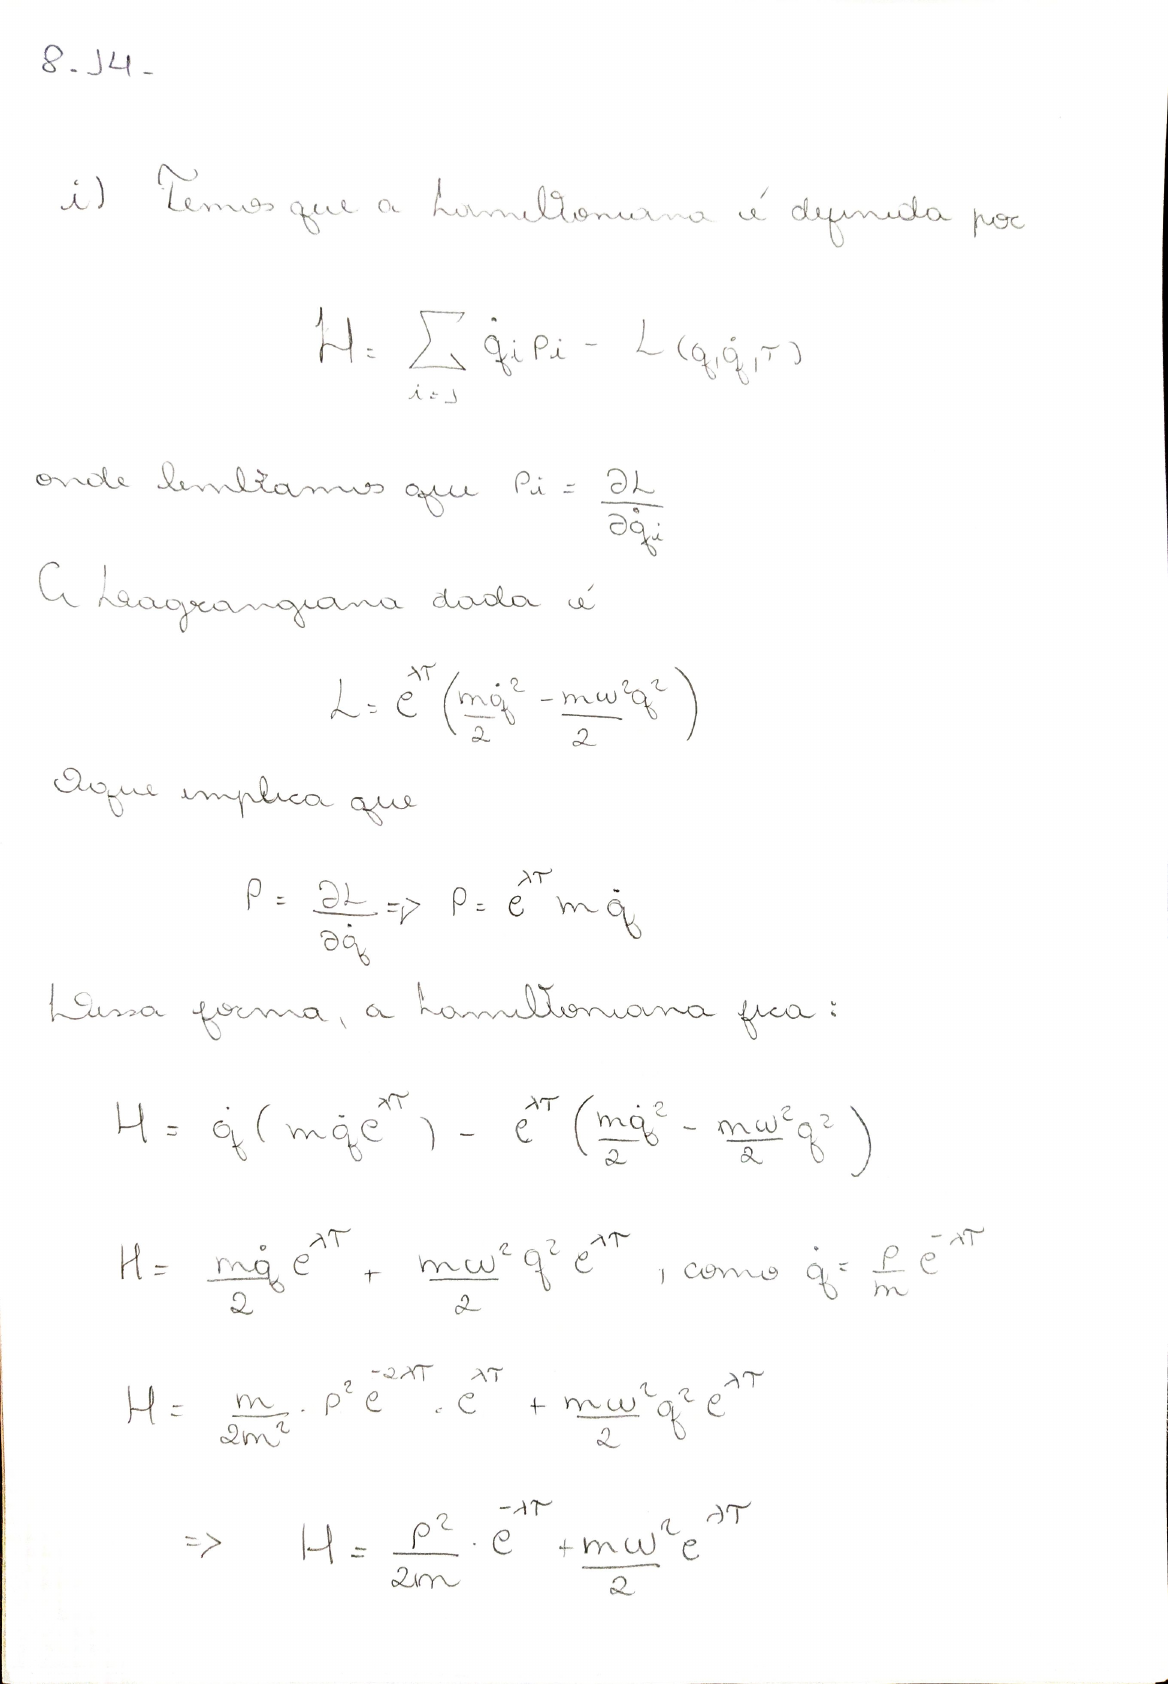 8.14.
i) Temos que a hamiltoniana é definida por
H = ∑_{i=1} q̇i pi - L(q, q̇, t)
onde lembramos que pi = ∂L/∂q̇i
A Lagrangiana dada é
L = e^{λt} (mq̇²/2 - mω²q²/2)
O que implica que
P = ∂L/∂q̇ => P = e^{λt} m q̇
Dessa forma, a hamiltoniana fica:
H = q̇(mq̇e^{λt}) - e^{λt} (mq̇²/2 - mω²/2 q²)
H = mq̇/2 e^{λt} + mω²/2 q² e^{λt}, como q̇ = p/m e^{-λt}
H = m/2m² · p² e^{-2λt} · e^{λt} + mω²/2 q² e^{λt}
=> H = p²/2m · e^{-λt} + mω²/2 e^{λt}